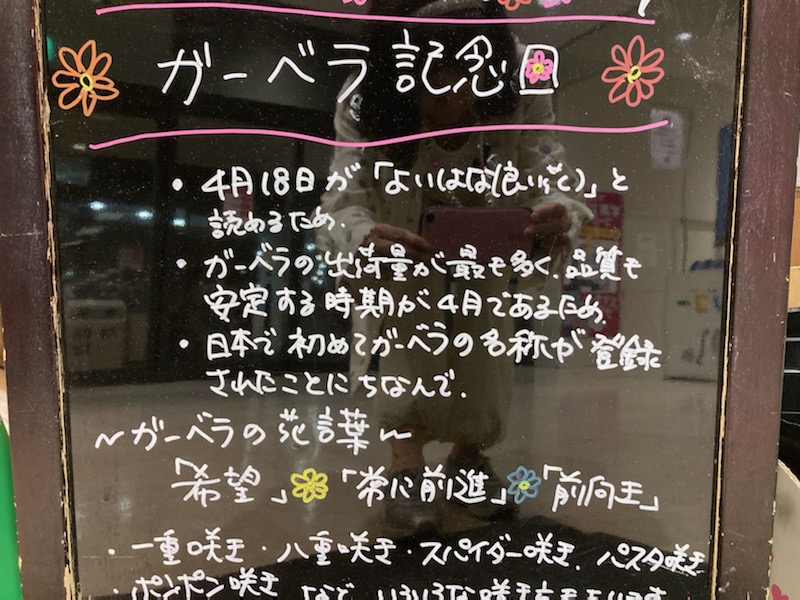 ガーベラ記念日
・4月18日が「よいはな(良い花)」と
読めるため.
・ガーベラの出荷量が最も多く、品質も
安定する時期が4月であるため.
・日本で初めてガーベラの名称が登録
されたことにちなんで.
～ガーベラの花言葉～
「希望」「常に前進」「前向き」
・一重咲き・八重咲き・スパイダー咲き、パスタ咲き
・ポンポン咲き など、いろいろな咲き方をします